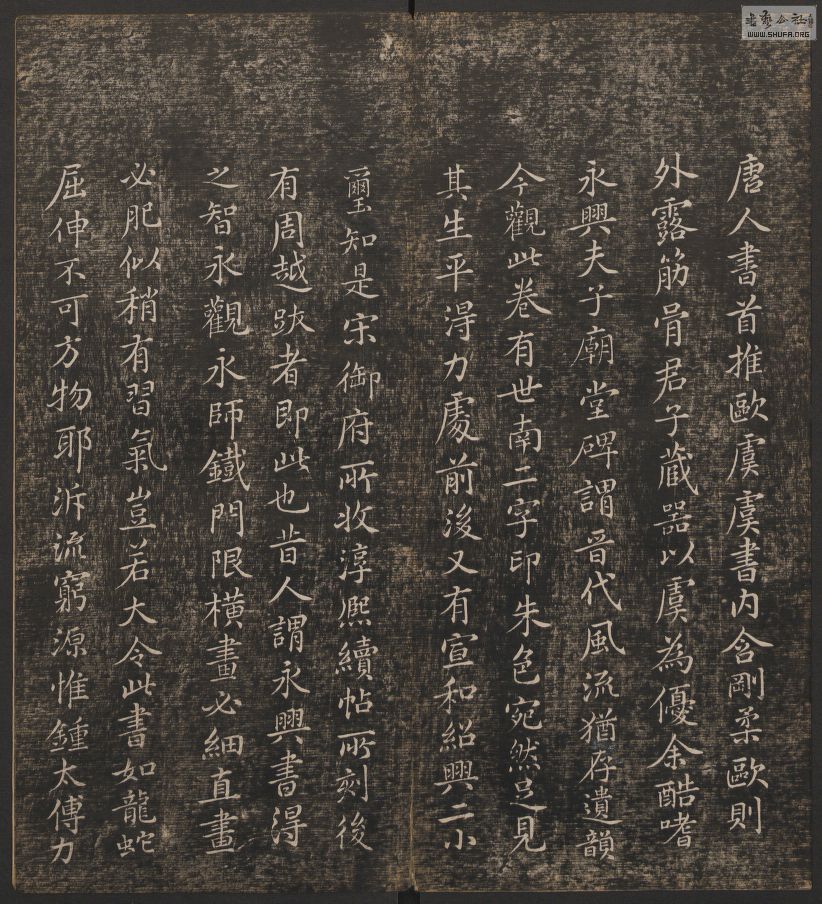 唐人書首推歐虞虞書內含剛柔歐則
外露筋骨君子藏器以虞為優余酷嗜
永興夫子廟堂碑謂晉代風流猶存遺韻
今觀此卷有世南二字印朱色宛然足見
其生平得力處前後又有宣和紹興二小
璽知是宋御府所收淳熈續帖所刻後
有周越跋者即此也昔人謂永興書得
之智永觀永師鐵門限橫畫必細直畫
必肥似稍有習氣豈若大令此書如龍蛇
屈伸不可方物耶泝流窮源惟鍾太傅力
書藝公社
WWW.SHUFA.ORG